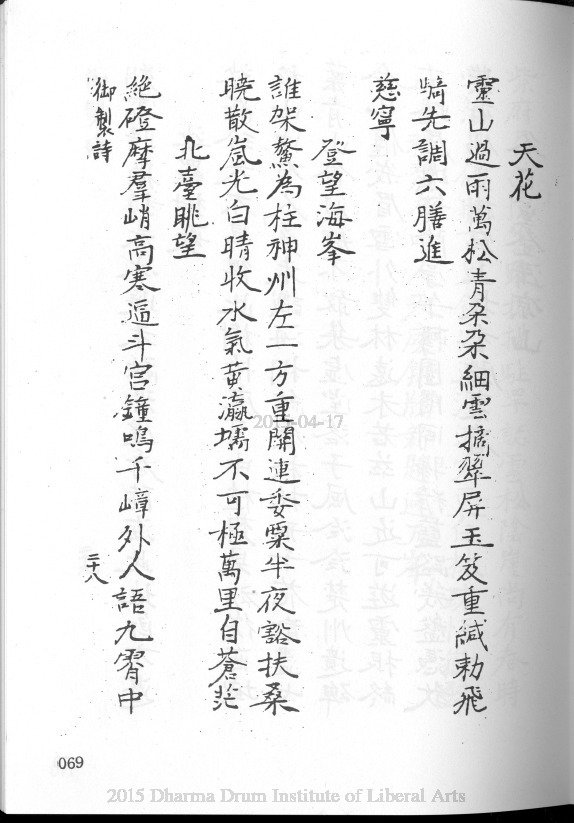 天花
靈山過雨萬松青朶朶細雲擁翠屏玉笈重緘勅飛
騎先調六膳進
慈寧
登望海峯
誰架鰲為柱神州左一方重關連委粟半夜豁扶桑
曉散嵐光白晴收水氣黄瀛壖不可極萬里自蒼茫
北臺眺望
絶磴摩羣峭高寒逼斗宫鐘鳴千嶂外人語九霄中
御製詩
二十八
069
2015 Dharma Drum Institute of Liberal Arts